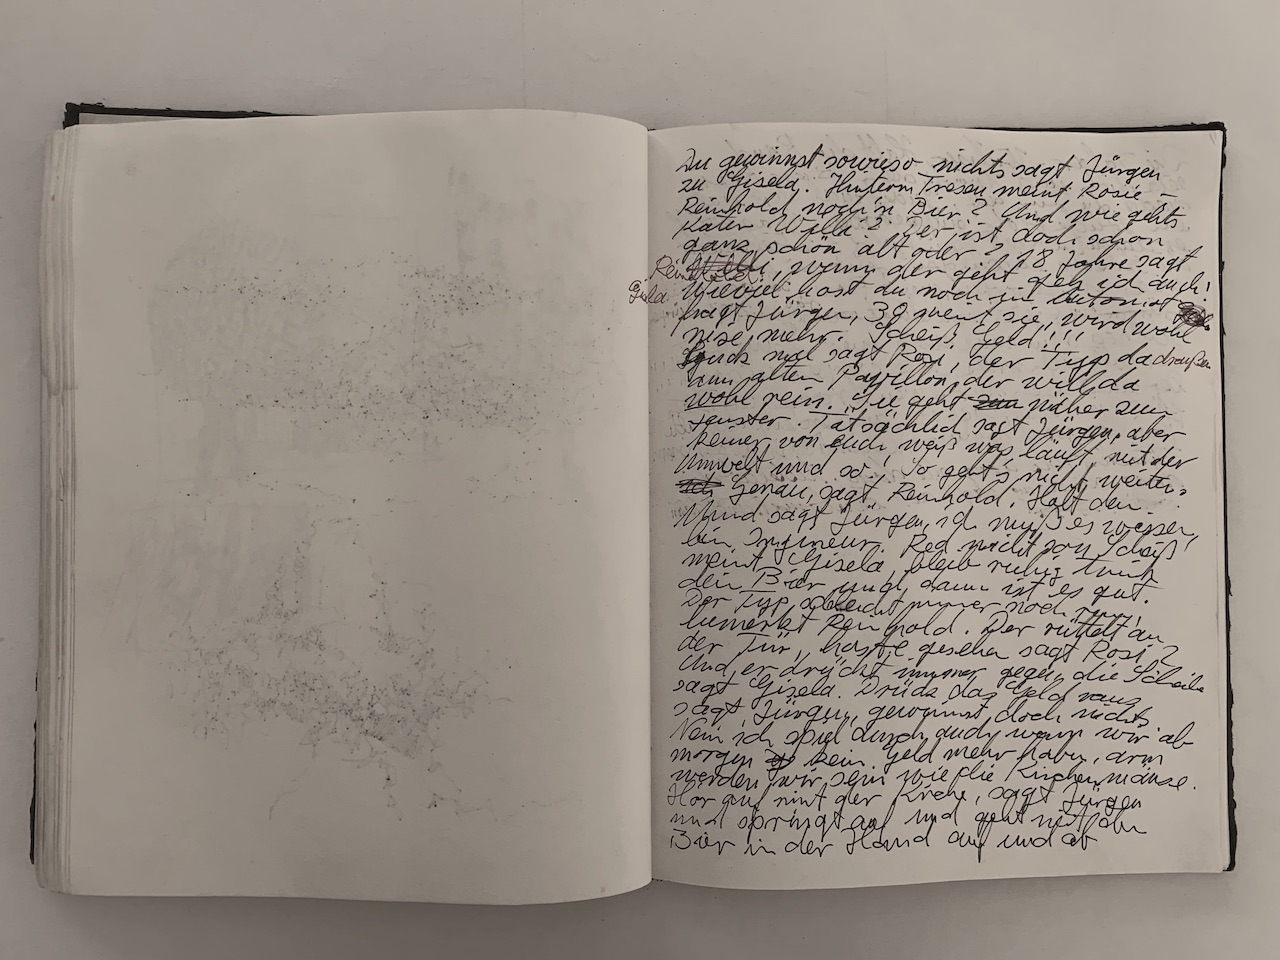 Du gewinnst sowieso nichts sagt Jürgen
zu Gisela. Hinterm Tresen meint Rosie –
Reinhold noch'n Bier? Und wie gehts
Kater Willi? Der ist doch schon
ganz schön alt oder? 18 Jahre sagt
Rein, wenn der geht geh ich auch!
Wieviel hast du noch im Automat
fragt Jürgen, 30 meint sie, wird wohl
nise mehr. Scheiß Geld!!!
Guck mal sagt Rosi, der Typ da draußen
am alten Pavillon, der will da
wohl rein. Sie geht näher zum
Fenster. Tatsächlich sagt Jürgen, aber
keiner von euch weiß was läuft mit der
Umwelt und so, so geht's nicht weiter.
Genau, sagt Reinhold. Halt den
Mund sagt Jürgen, ich muß es wissen,
bin Ingineur. Red nicht son Scheiß
meint Gisela, bleib ruhig trink
dein Bier und dann ist es gut.
Der Typ schleicht immer noch rum,
bemerkt Reinhold. Der rüttelt an
der Tür, haste gesehn sagt Rosi?
Und er drückt immer gegen die Scheibe
sagt Gisela. Drück das Geld raus
sagt Jürgen, gewinnst doch nichts
Nein ich spiel durch auch wenn wir ab
morgen kein Geld mehr haben, arm
werden wir sein wie die Kirchenmäuse.
Hör auf mit der Kirche, sagt Jürgen
und springt auf und geht mit dem
Bier in der Hand auf und ab